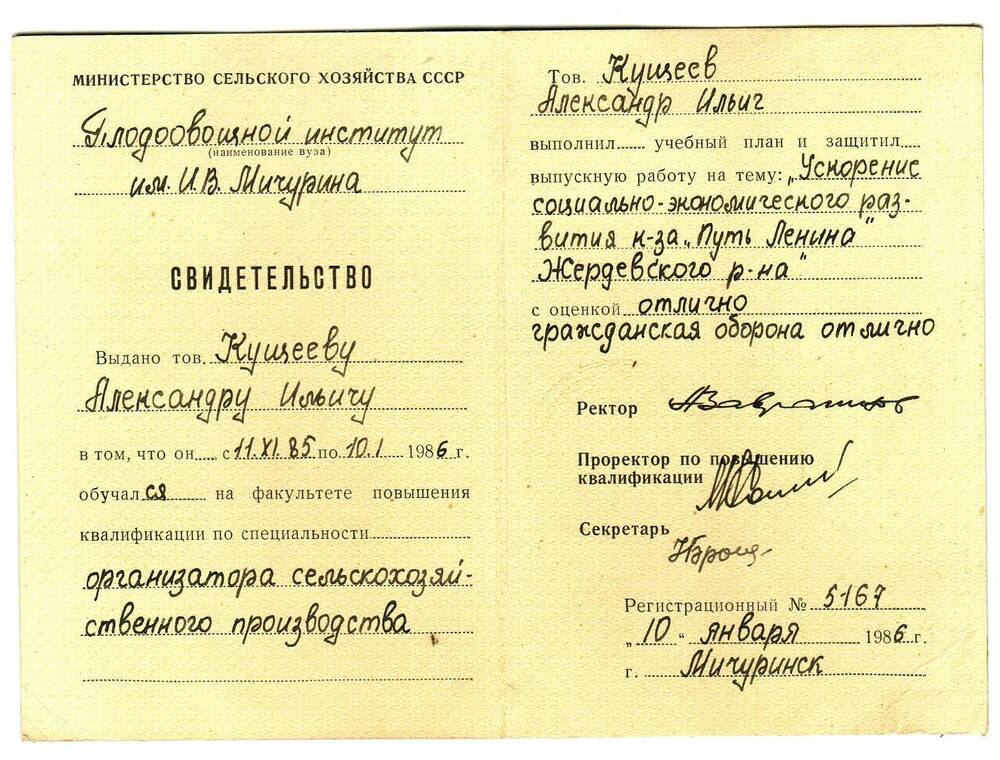 МИНИСТЕРСТВО СЕЛЬСКОГО ХОЗЯЙСТВА СССР
Плодоовощной институт
(наименование вуза)
им. И.В. Мичурина
СВИДЕТЕЛЬСТВО
Выдано тов. Кущееву
Александру Ильичу
в том, что он с 11.XI.85 по 10.I 1986 г.
обучался на факультете повышения
квалификации по специальности
организатора сельскохозяй-
ственного производства
Тов. Кущеев
Александр Ильич
выполнил учебный план и защитил
выпускную работу на тему: „Ускорение
социально-экономического раз-
вития к-за „Путь Ленина"
Жердевского р-на"
с оценкой отлично
гражданская оборона отлично
Ректор
Проректор по повышению
квалификации
Секретарь
Регистрационный № 5167
„10" января 1986 г.
г. Мичуринск